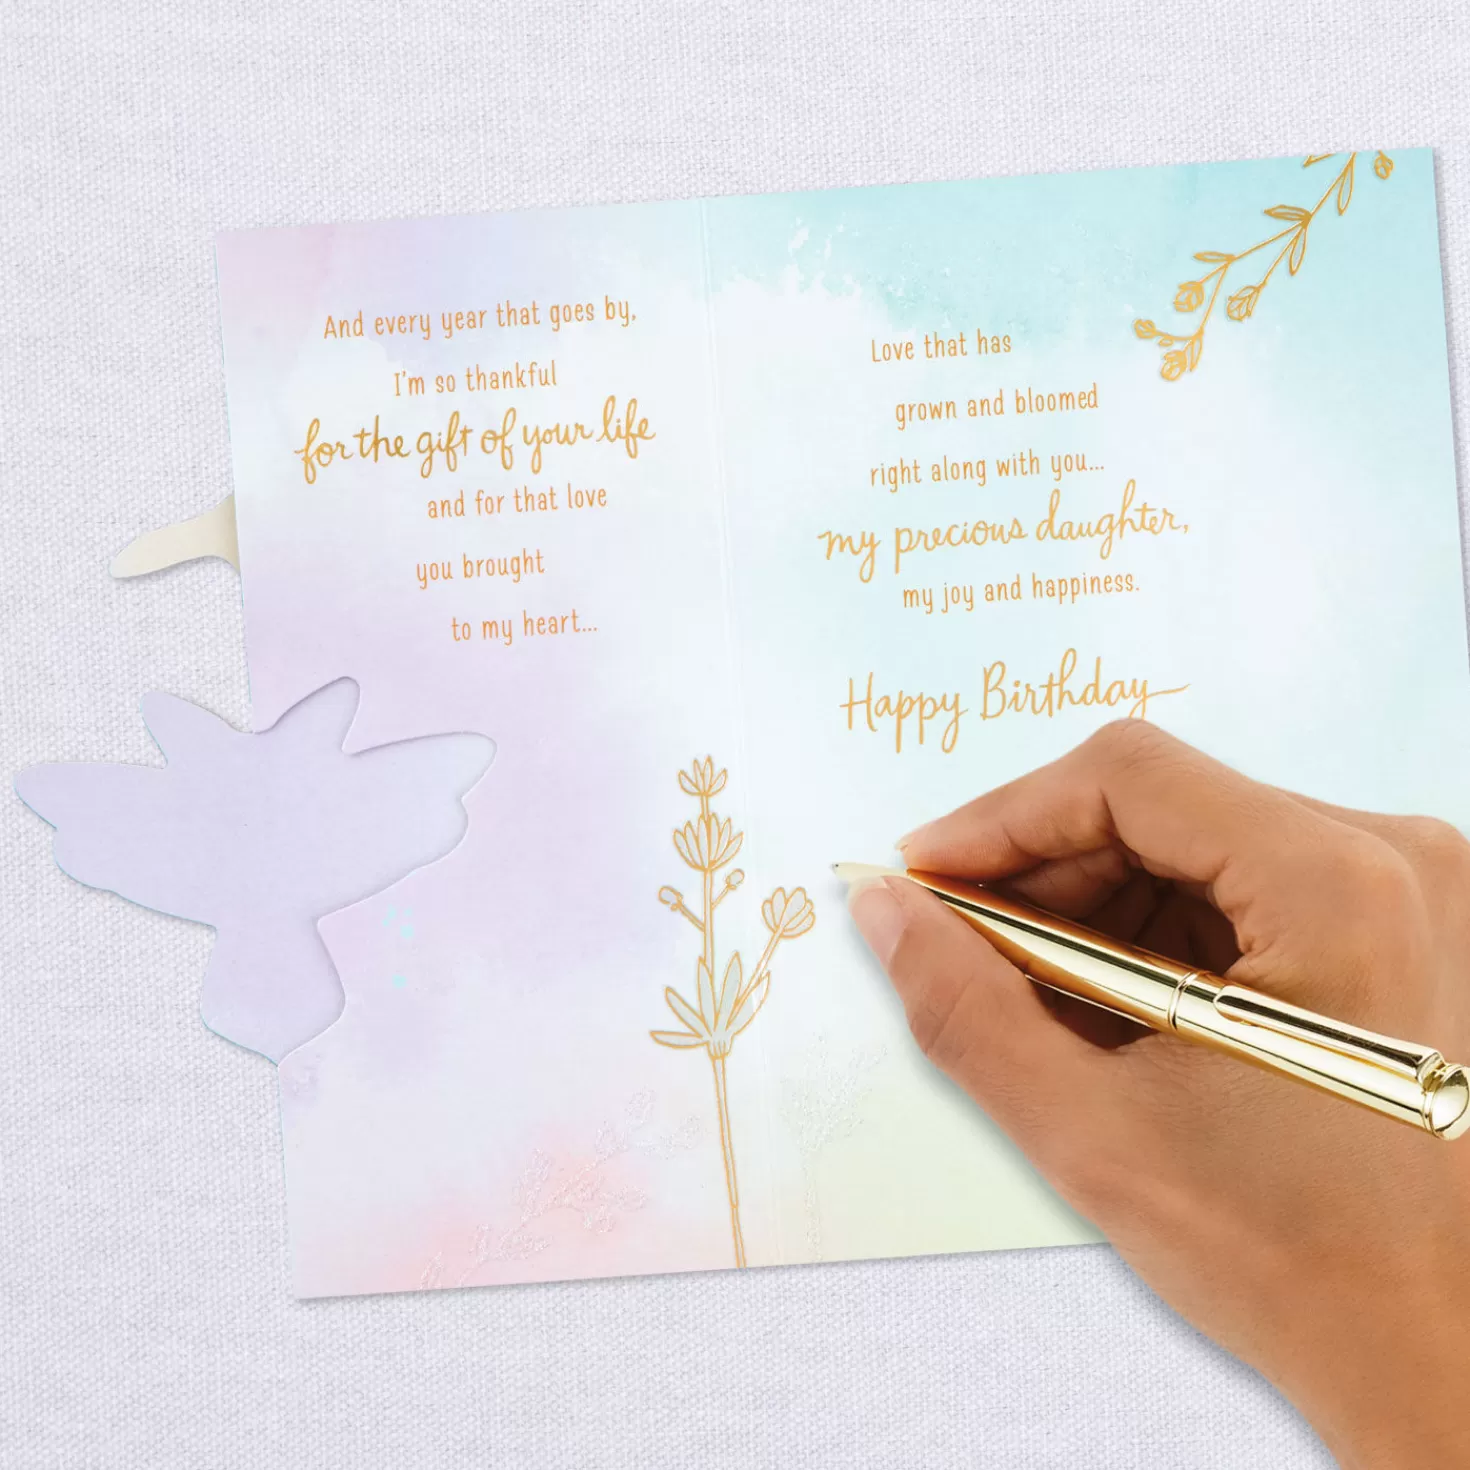 And every year that goes by,
I'm so thankful
for the gift of your life
and for that love
you brought
to my heart...
Love that has
grown and bloomed
right along with you...
my precious daughter,
my joy and happiness.
Happy Birthday